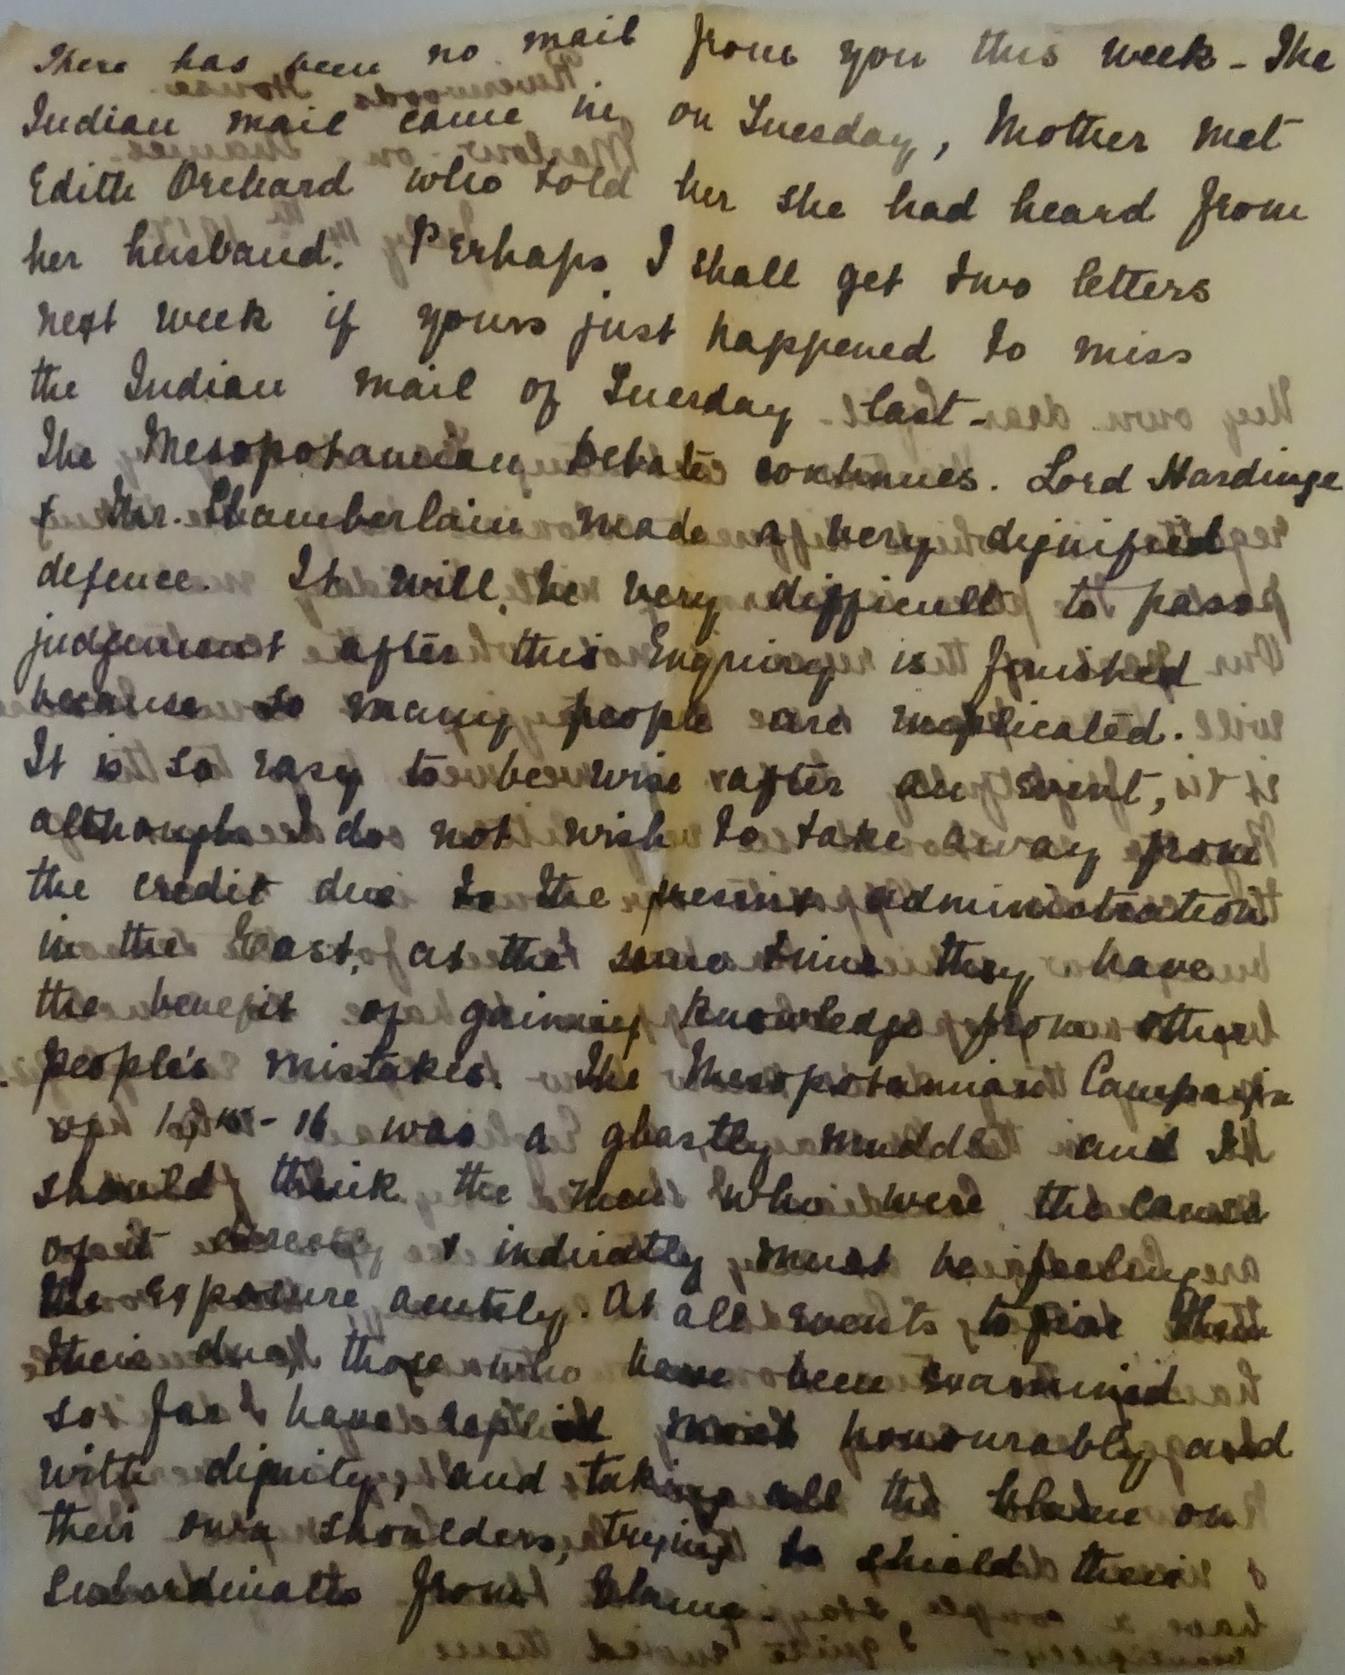 There has been no mail from you this week - The
Indian mail came in on Tuesday, Mother met
Edith Orchard who told her she had heard from
her husband. Perhaps I shall get two letters
next week if yours just happened to miss
the Indian mail of Tuesday last -
The Mesopotamian Debate continues. Lord Hardinge
& Mr. Chamberlain made a very dignified
defence. It will be very difficult to pass
judgement after this Enquiry is finished
because so many people are implicated.
It is so easy to be wise after an event,
although I do not wish to take away from
the credit due to the present administration
in the East, at the same time they have
the benefit of gaining knowledge from other
people's mistakes. The Mesopotamian Campaign
of 1915-16 was a ghastly muddle and I
should think the men who were the cause
of it directly & indirectly must be feeling
the exposure acutely. At all events to give them
their due, those who have been examined
so far have replied most honourably and
with dignity, and taking all the blame on
their own shoulders, trying to shield their
subordinates from blame.